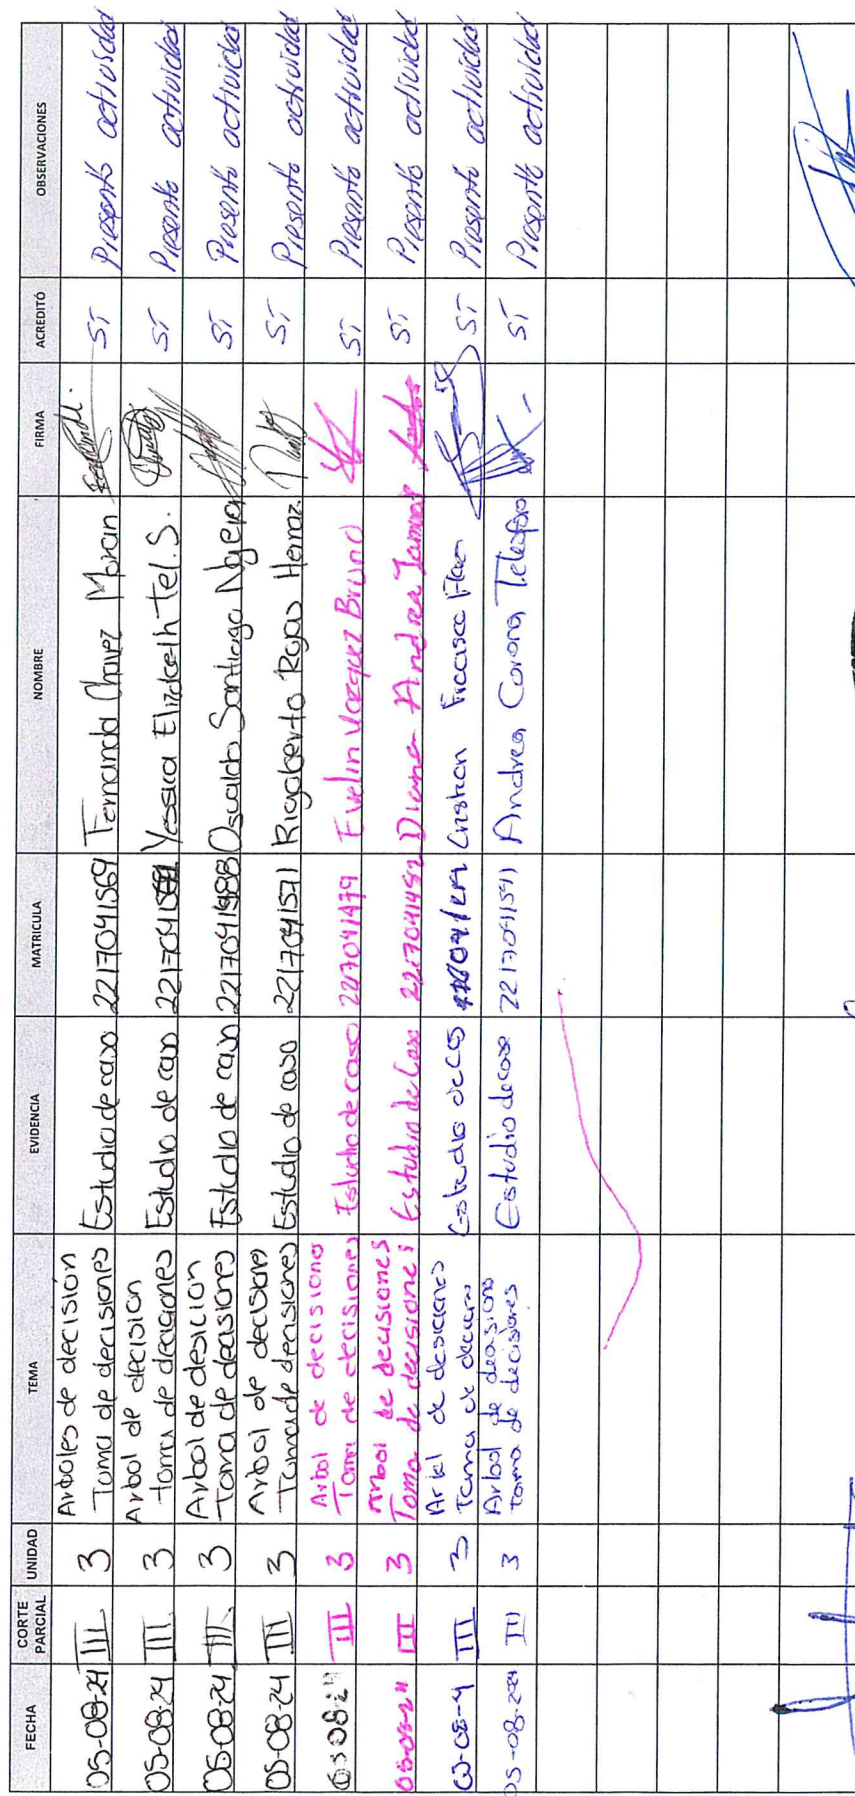 FECHA CORTE PARCIAL UNIDAD TEMA EVIDENCIA MATRICULA NOMBRE FIRMA ACREDITÓ OBSERVACIONES
05-08-24 III 3 Arboles de decisión Toma de decisiones Estudio de caso 2217041569 Fernanda Chavez Moran SI Presento actividad
05-08-24 III 3 Arbol de decision toma de decisiones Estudio de caso Yessica Elizabeth Tel. S. SI Presento actividad
05-08-24 III 3 Arbol de desicion Toma de decisiones Estudio de caso Osvaldo Santiago Ngera SI Presento actividad
05-08-24 III 3 Arbol de decisiones Toma de decisiones Estudio de caso 2217041571 Rigoberto Rojas Hernaz. SI Presento actividad
05-08-24 III 3 Arbol de decisiones Toma de decisiones Estudio de caso 2217041479 Evelin Vazquez Bruno SI Presento actividad
05-08-24 III 3 Arbol de decisiones Toma de decisiones Estudio de Caso Diana Andrea SI Presento actividad
III 3 de desiciones Toma de Estudio SI Presento actividad
05-08-2024 III 3 Arbol de decisions toma de decisiones Estudio de caso 2217041541 Andrea Corona Telesforo SI Presento actividad